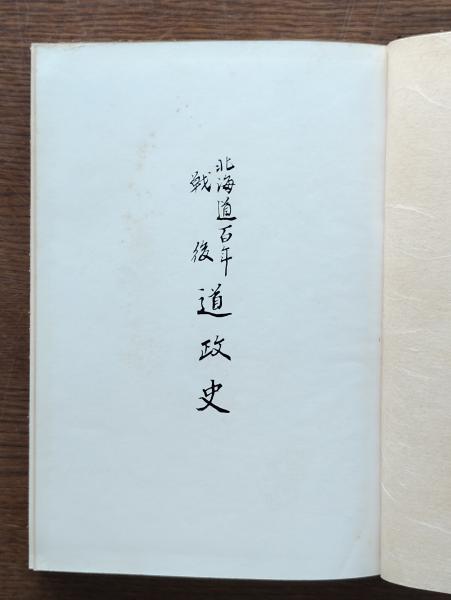 北海道百年
戦後
道政史